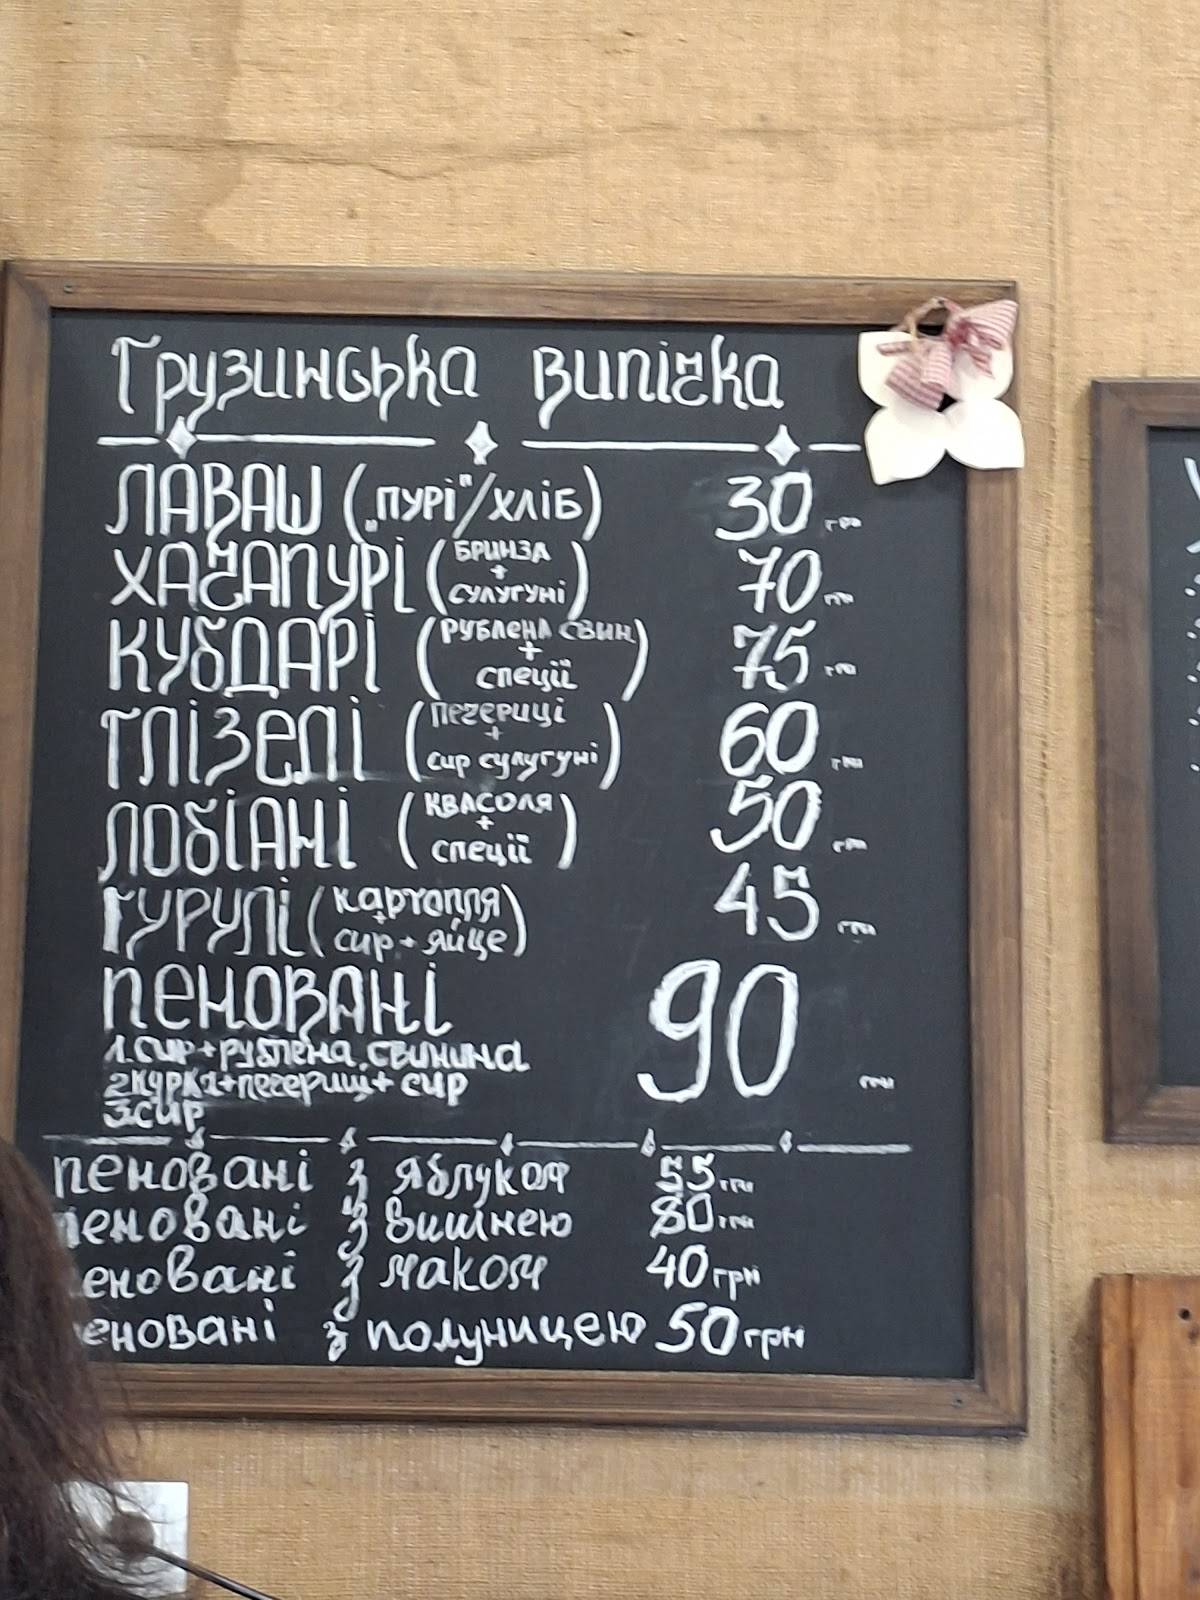 Грузинська випічка
ЛАВАШ („ПУРІ"/ХЛІБ) 30 грн
ХАЧАПУРІ (БРИНЗА + СУЛУГУНІ) 70 грн
КУБДАРІ (РУБЛЕНА СВИН + СПЕЦІЇ) 75 грн
ГЛІЗЕЛІ (ПЕЧЕРИЦІ + СИР СУЛУГУНІ) 60 грн
ЛОБІАНІ (КВАСОЛЯ + СПЕЦІЇ) 50 грн
ГУРУЛІ (КАРТОПЛЯ + СИР + ЯЙЦЕ) 45 грн
ПЕНОВАНІ 90 грн
1. СИР + РУБЛЕНА СВИНИНА
2 КУРКА + ПЕЧЕРИЦІ + СИР
3. СИР
пеновані з яблуком 55 грн
пеновані з вишнею 80 грн
еновані з маком 40 грн
еновані з полуницею 50 грн